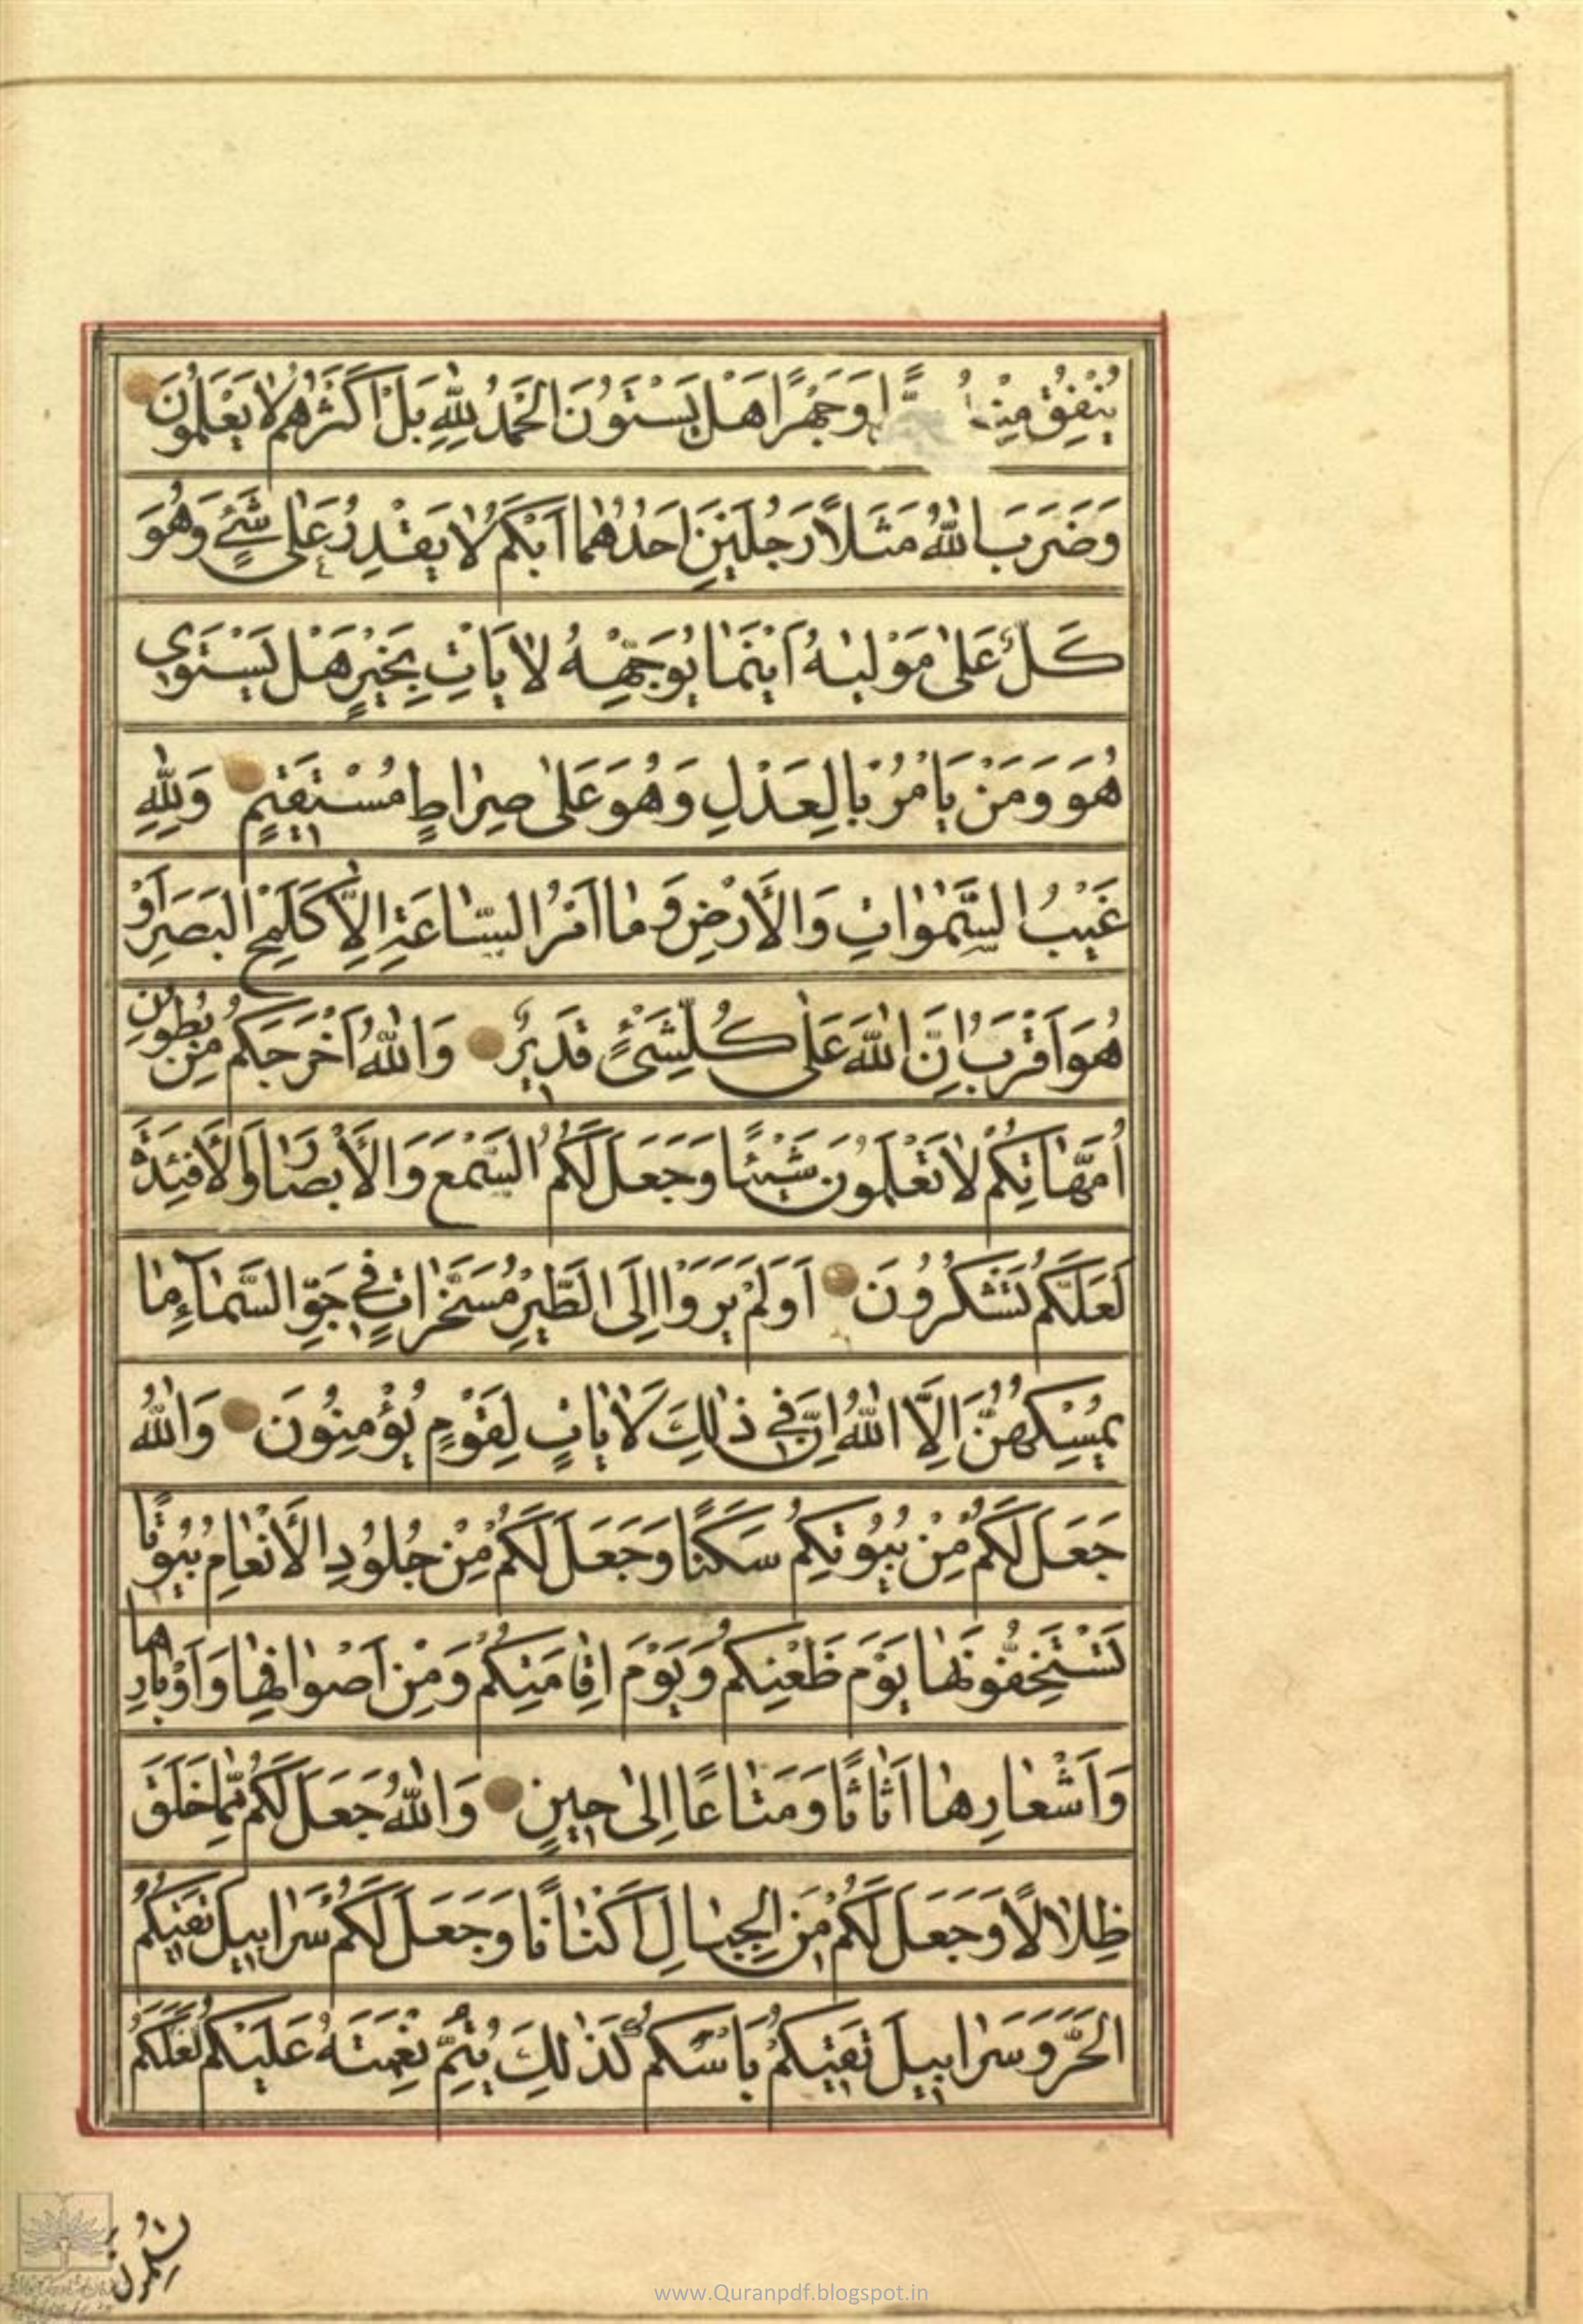 يُنْفِقُ مِنْهُ سِرًّا وَجَهْرًا هَلْ يَسْتَوُونَ الْحَمْدُ لِلّٰهِ بَلْ اَكْثَرُهُمْ لَا يَعْلَمُونَ
وَضَرَبَ اللّٰهُ مَثَلًا رَجُلَيْنِ اَحَدُهُمَا اَبْكَمُ لَا يَقْدِرُ عَلٰى شَيْءٍ وَهُوَ
كَلٌّ عَلٰى مَوْلٰيهُ اَيْنَمَا يُوَجِّهْهُ لَا يَاْتِ بِخَيْرٍ هَلْ يَسْتَوِي
هُوَ وَمَنْ يَاْمُرُ بِالْعَدْلِ وَهُوَ عَلٰى صِرَاطٍ مُسْتَقِيمٍ وَلِلّٰهِ
غَيْبُ السَّمٰوَاتِ وَالْاَرْضِ وَمَا اَمْرُ السَّاعَةِ اِلَّا كَلَمْحِ الْبَصَرِ اَوْ
هُوَ اَقْرَبُ اِنَّ اللّٰهَ عَلٰى كُلِّ شَيْءٍ قَدِيرٌ وَاللّٰهُ اَخْرَجَكُمْ مِنْ بُطُونِ
اُمَّهَاتِكُمْ لَا تَعْلَمُونَ شَيْئًا وَجَعَلَ لَكُمُ السَّمْعَ وَالْاَبْصَارَ وَالْاَفْئِدَةَ
لَعَلَّكُمْ تَشْكُرُونَ اَوَلَمْ يَرَوْا اِلَى الطَّيْرِ مُسَخَّرَاتٍ فِي جَوِّ السَّمَاءِ مَا
يُمْسِكُهُنَّ اِلَّا اللّٰهُ اِنَّ فِي ذٰلِكَ لَاٰيَاتٍ لِقَوْمٍ يُؤْمِنُونَ وَاللّٰهُ
جَعَلَ لَكُمْ مِنْ بُيُوتِكُمْ سَكَنًا وَجَعَلَ لَكُمْ مِنْ جُلُودِ الْاَنْعَامِ بُيُوتًا
تَسْتَخِفُّونَهَا يَوْمَ ظَعْنِكُمْ وَيَوْمَ اِقَامَتِكُمْ وَمِنْ اَصْوَافِهَا وَاَوْبَارِهَا
وَاَشْعَارِهَا اَثَاثًا وَمَتَاعًا اِلٰى حِينٍ وَاللّٰهُ جَعَلَ لَكُمْ مِمَّا خَلَقَ
ظِلَالًا وَجَعَلَ لَكُمْ مِنَ الْجِبَالِ اَكْنَانًا وَجَعَلَ لَكُمْ سَرَابِيلَ تَقِيكُمُ
الْحَرَّ وَسَرَابِيلَ تَقِيكُمْ بَاْسَكُمْ كَذٰلِكَ يُتِمُّ نِعْمَتَهُ عَلَيْكُمْ لَعَلَّكُمْ
تُسْلِمُونَ
www.Quranpdf.blogspot.in